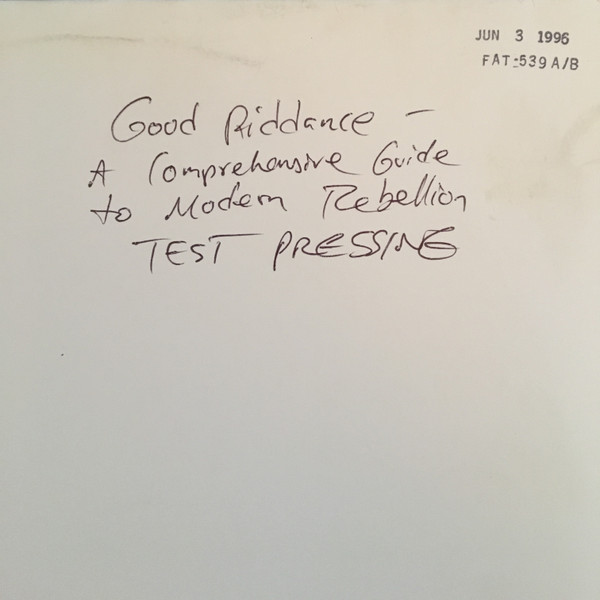 JUN 3 1996
FAT-539 A/B
Good Riddance -
A Comprehensive Guide
to Modern Rebellion
TEST PRESSING